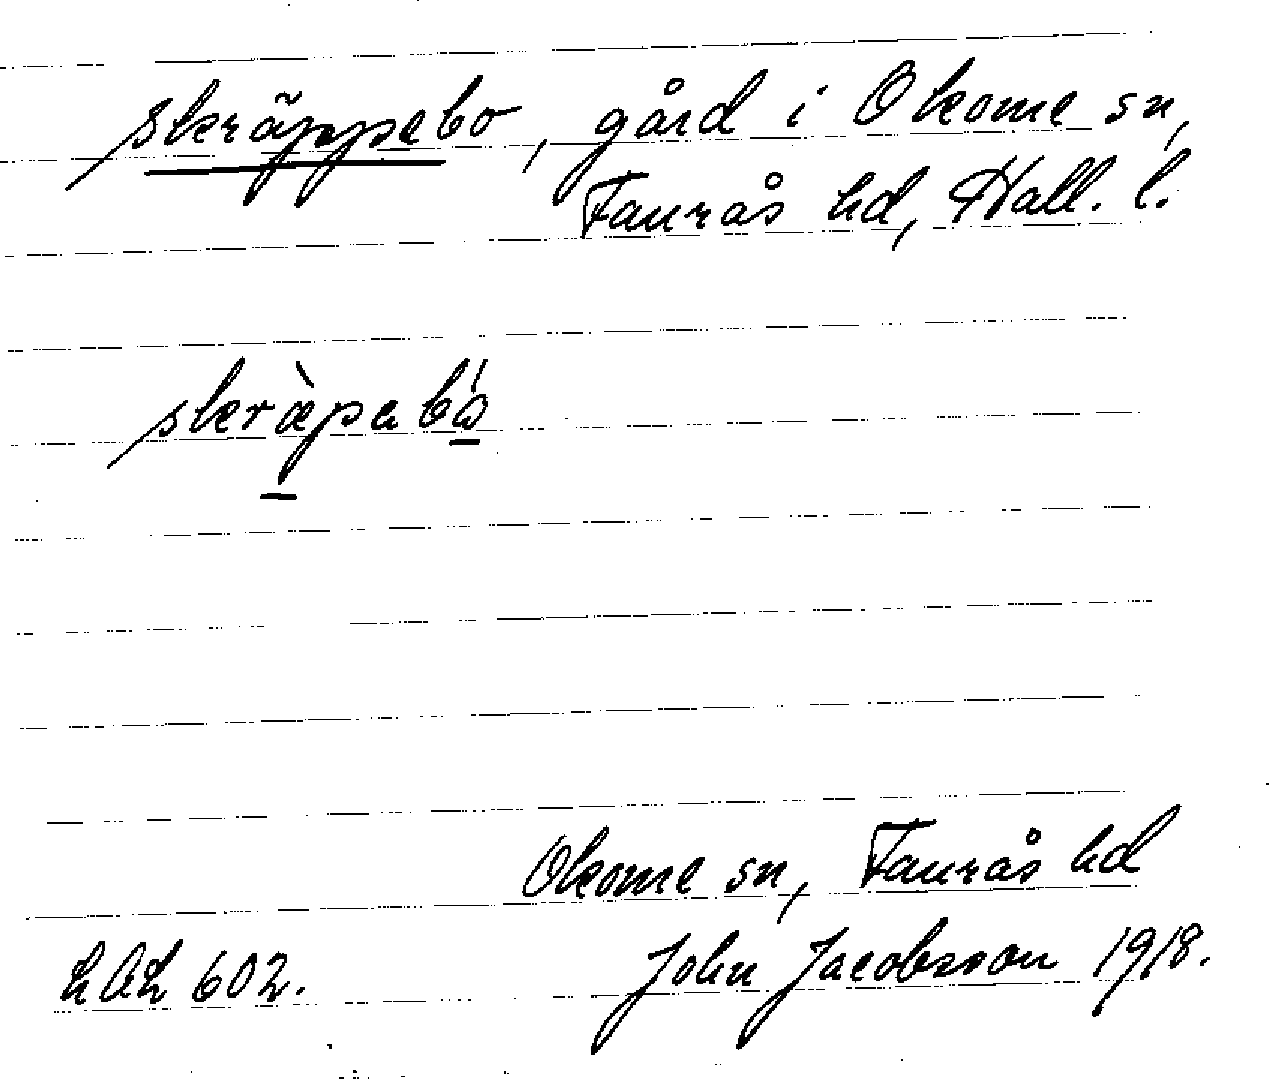 skräppebo, gård i Okome sn,
Faurås hd, Hall. l.
skræ̀pabó
Okome sn, Faurås hd
LAL 602. John Jacobsson 1918.